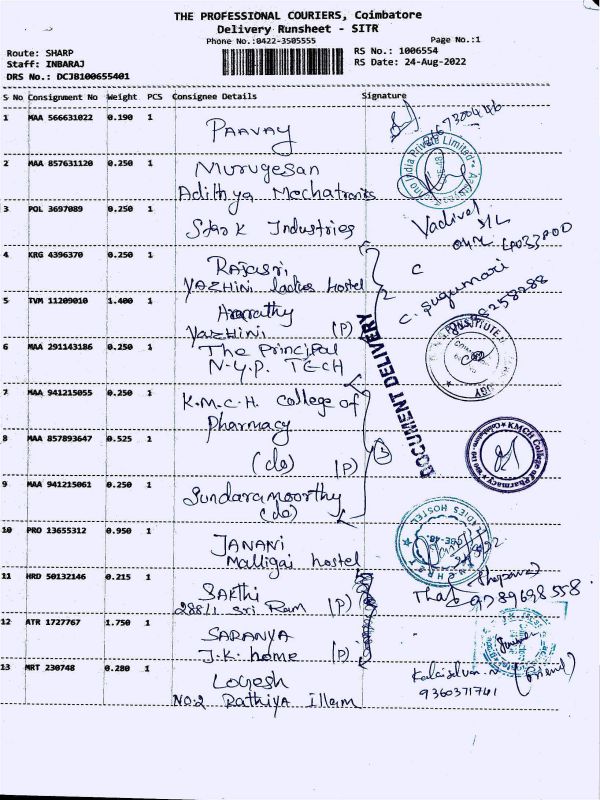 THE PROFESSIONAL COURIERS, Coimbatore
Delivery Runsheet - SITR
Phone No.:0422-3505555
Page No.:1
Route: SHARP
RS No.: 1006554
Staff: INBARAJ
RS Date: 24-Aug-2022
DRS No.: DCJB100655401
S No Consignment No Weight PCS Consignee Details Signature
1 MAA 566631022 0.190 1 PAAVAY
2 MAA 857631120 0.250 1 Murugesan
Adithya Mechatronics
3 POL 3697089 0.250 1 Star K Industries
Vadivel
4 KRG 4396370 0.250 1 Rajasri,
YAZHINI ladies hostel
C. Sugumari
5 TVM 11209010 1.400 1
Yazhini (P)
6 MAA 291143186 0.250 1 The Principal
N.G.P. TECH
DOCUMENT DELIVERY
7 MAA 941215055 0.250 1 K.M.C.H. College of
Pharmacy
KMCH College of Pharmacy
8 MAA 857893647 0.525 1 (do) (P) 3
9 MAA 941215061 0.250 1 Sundaramoorthy
(do)
10 PRO 13655312 0.950 1 JANANI,
Malligai hostel
LADIES HOSTEL
11 HRD 50132146 0.215 1 SAKTHI
288/1 Sri Ram (P)
9789698558
12 ATR 1727767 1.750 1 SARANYA
J.K. home (P)
13 MRT 230748 0.280 1 Logesh
No:2 Rathiya Illam
Kalaiselvan.N (friend)
9360371741